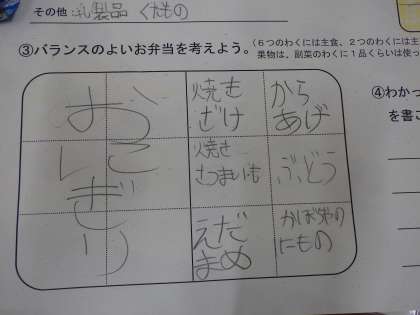 その他:乳製品 くだもの
③バランスのよいお弁当を考えよう。
(６つのわくには主食、２つのわくには主
果物は、副菜のわくに１品くらいは使っ
お
に
ぎ
り
焼き
ざけ
から
あげ
焼き
さつまいも
ぶどう
えだ
まめ
かぼちゃの
にもの
④わかっ
を書こ